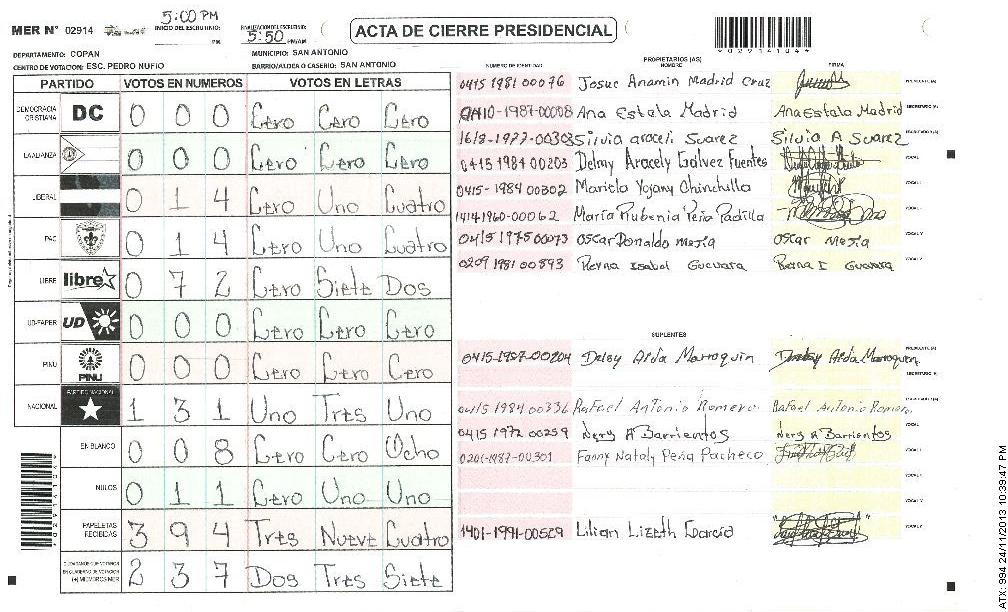 MER N° 02914
5:00 PM
INICIO DEL ESCRUTINIO:
PM
FINALIZACION DEL ESCRUTINIO:
5:50 PM/AM
ACTA DE CIERRE PRESIDENCIAL
DEPARTAMENTO: COPAN
MUNICIPIO: SAN ANTONIO
CENTRO DE VOTACION: ESC. PEDRO NUFIO
BARRIO/ALDEA O CASERIO: SAN ANTONIO
PARTIDO VOTOS EN NUMEROS VOTOS EN LETRAS
DEMOCRACIA CRISTIANA DC 0 0 0 Cero Cero Cero
LA ALIANZA 0 0 0 Cero Cero Cero
LIBERAL 0 1 4 Cero Uno Cuatro
PAC 0 1 4 Cero Uno Cuatro
LIBRE libre 0 7 2 Cero Siete Dos
UD-FAPER UD 0 0 0 Cero Cero Cero
PINU PINU 0 0 0 Cero Cero Cero
NACIONAL PARTIDO NACIONAL 1 3 1 Uno Tres Uno
EN BLANCO 0 0 8 Cero Cero Ocho
NULOS 0 1 1 Cero Uno Uno
PAPELETAS RECIBIDAS 3 9 4 Tres Nueve Cuatro
(+) MIEMBROS MER 2 3 7 Dos Tres Siete
PROPIETARIOS (AS)
NUMERO DE IDENTIDAD NOMBRE FIRMA
0415 1981 00076 Josue Anamin Madrid Cruz PRESIDENTE (A)
0410-1987-00008 Ana Estela Madrid Ana Estala Madrid SECRETARIO (A)
1618-1977-00303 Silvia aroceli Suarez Silvia A Suarez
0415 1984 00203 Delmy Aracely Galvez Fuentes
0415-1984 00302 Mariela Yojany Chinchilla
1414 1960-00062 María Rubenia Peña Padilla
0415 1975 00073 Oscar Donaldo mejia Oscar mejia
0209 1981 00893 Reyna Isabel Guevara Reyna I Guevara
SUPLENTES
0415-1987-00204 Delsy Aida Marroquin Delsy Aida Marroquin
0415 1984 00336 Rafael Antonio Romero Rafael Antonio Romero
0415 1972 00259 Nery A Barrientos Nery A Barrientos
0201-1987-00301 Fanny Nataly Peña Pacheco
1401-1991-00529 Lilian Lizeth Garcia
ATX: 994 24/11/2013 10:39:47 PM